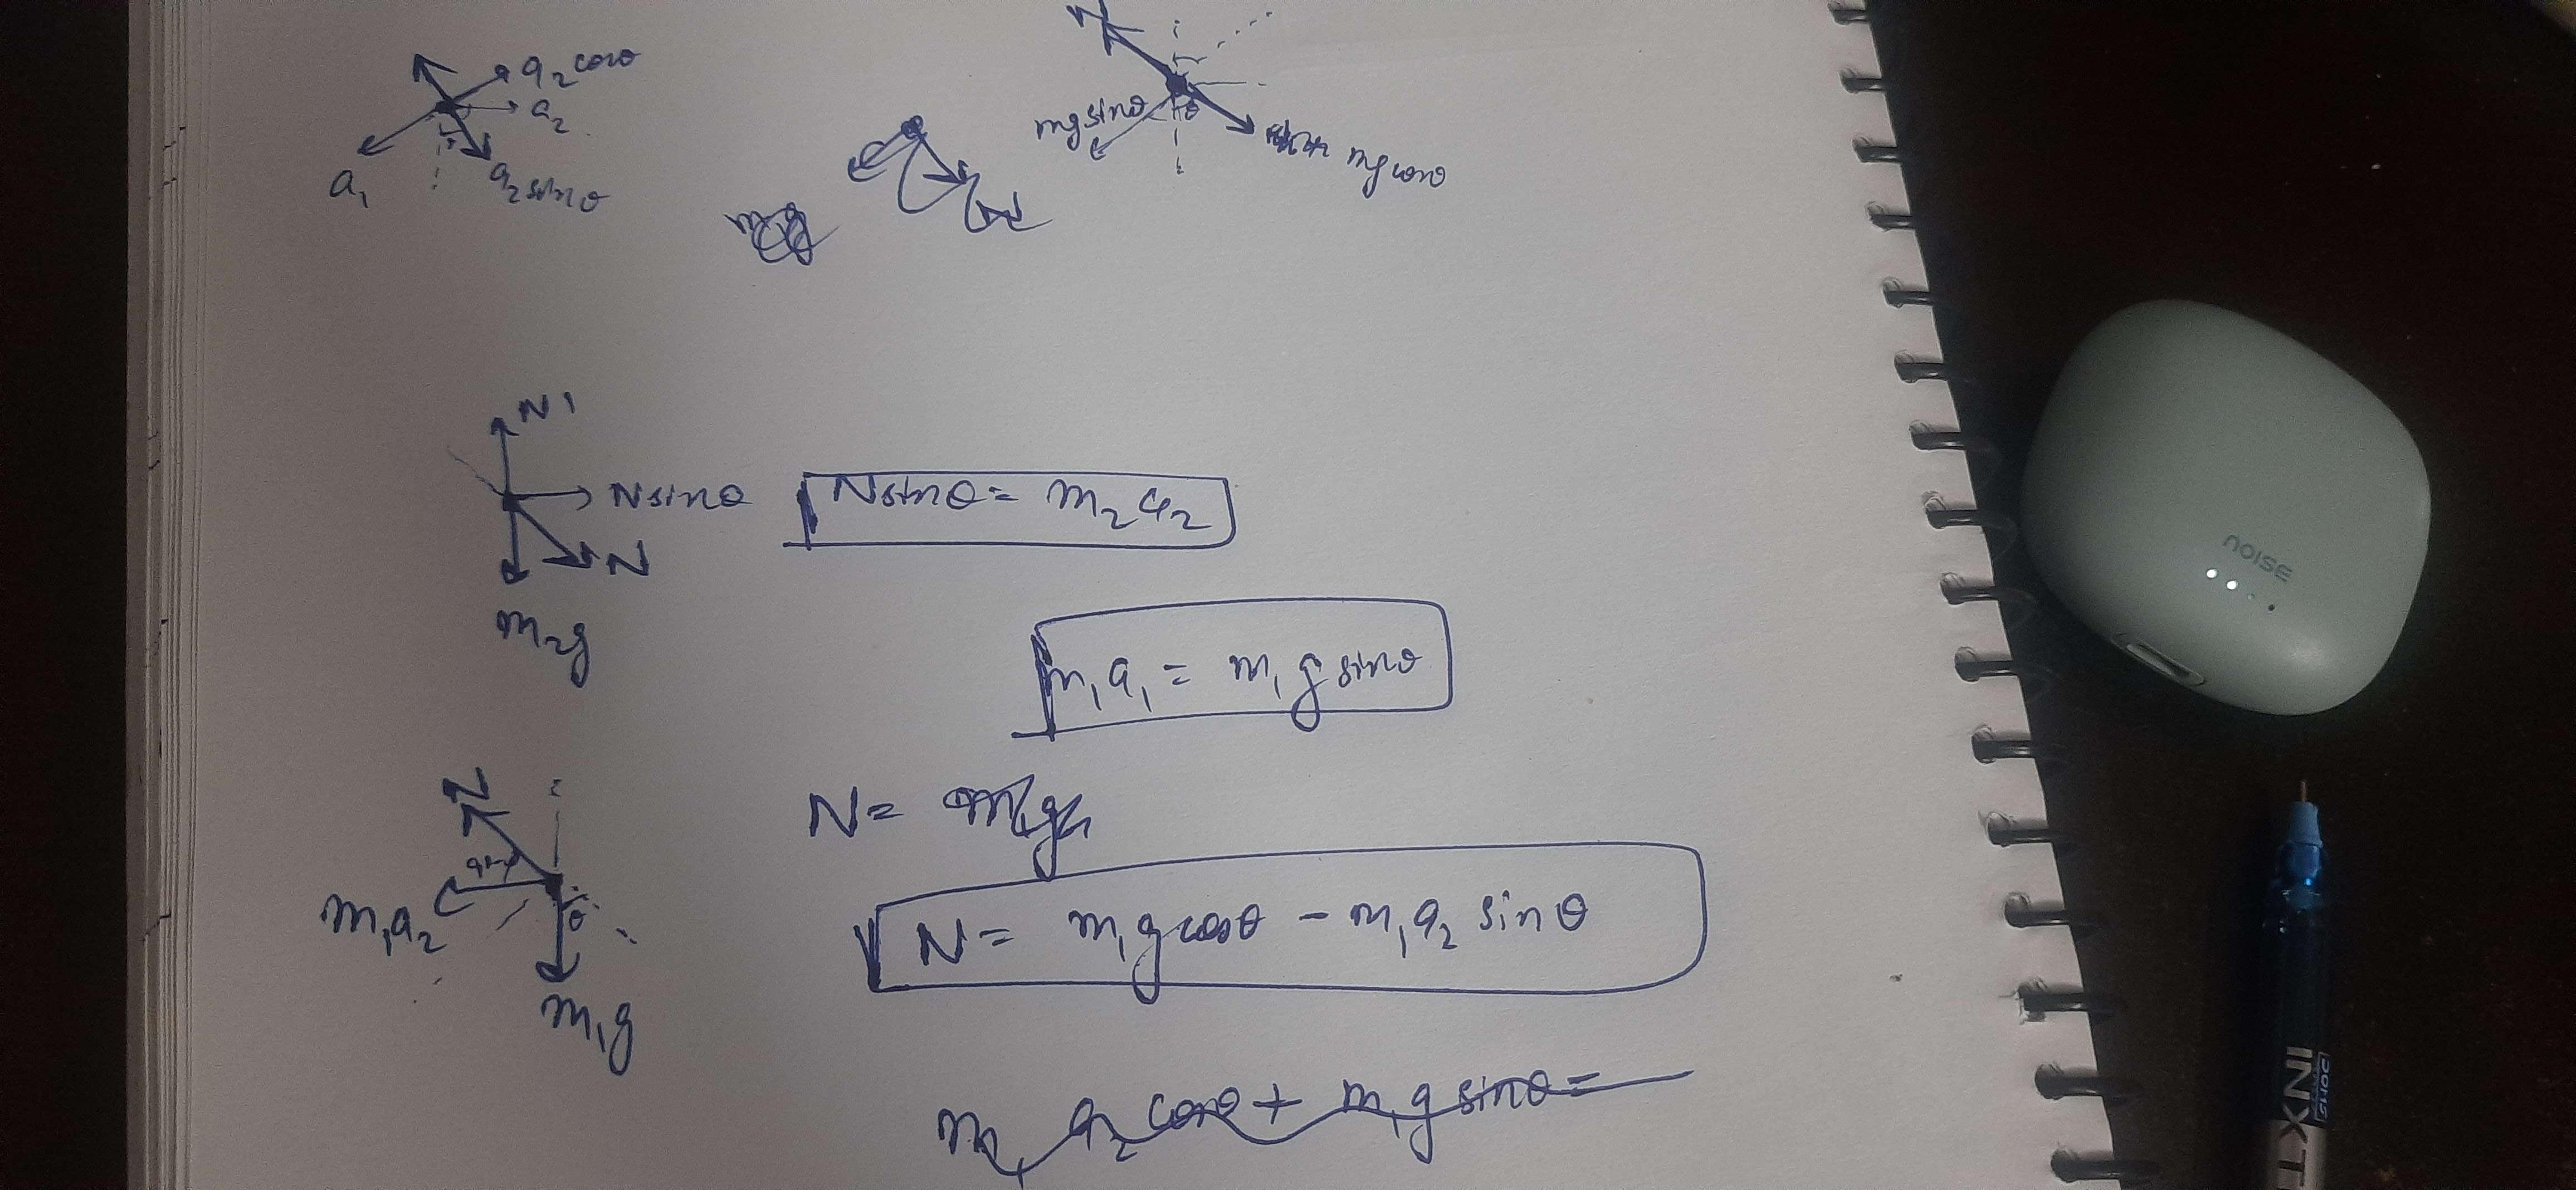 a₂ cosθ
a₂
a₁
a₂ sinθ
N
mg sinθ
θ
mg cosθ
N'
N sinθ
N
m₂g
N sinθ = m₂ a₂
m₁ a₁ = m₁ g sinθ
N
m₁a₂
θ
m₁g
N =
N = m₁ g cosθ - m₁ a₂ sinθ
m₁ a₂ cosθ + m₁ g sinθ =
noise
DOMS
INXT